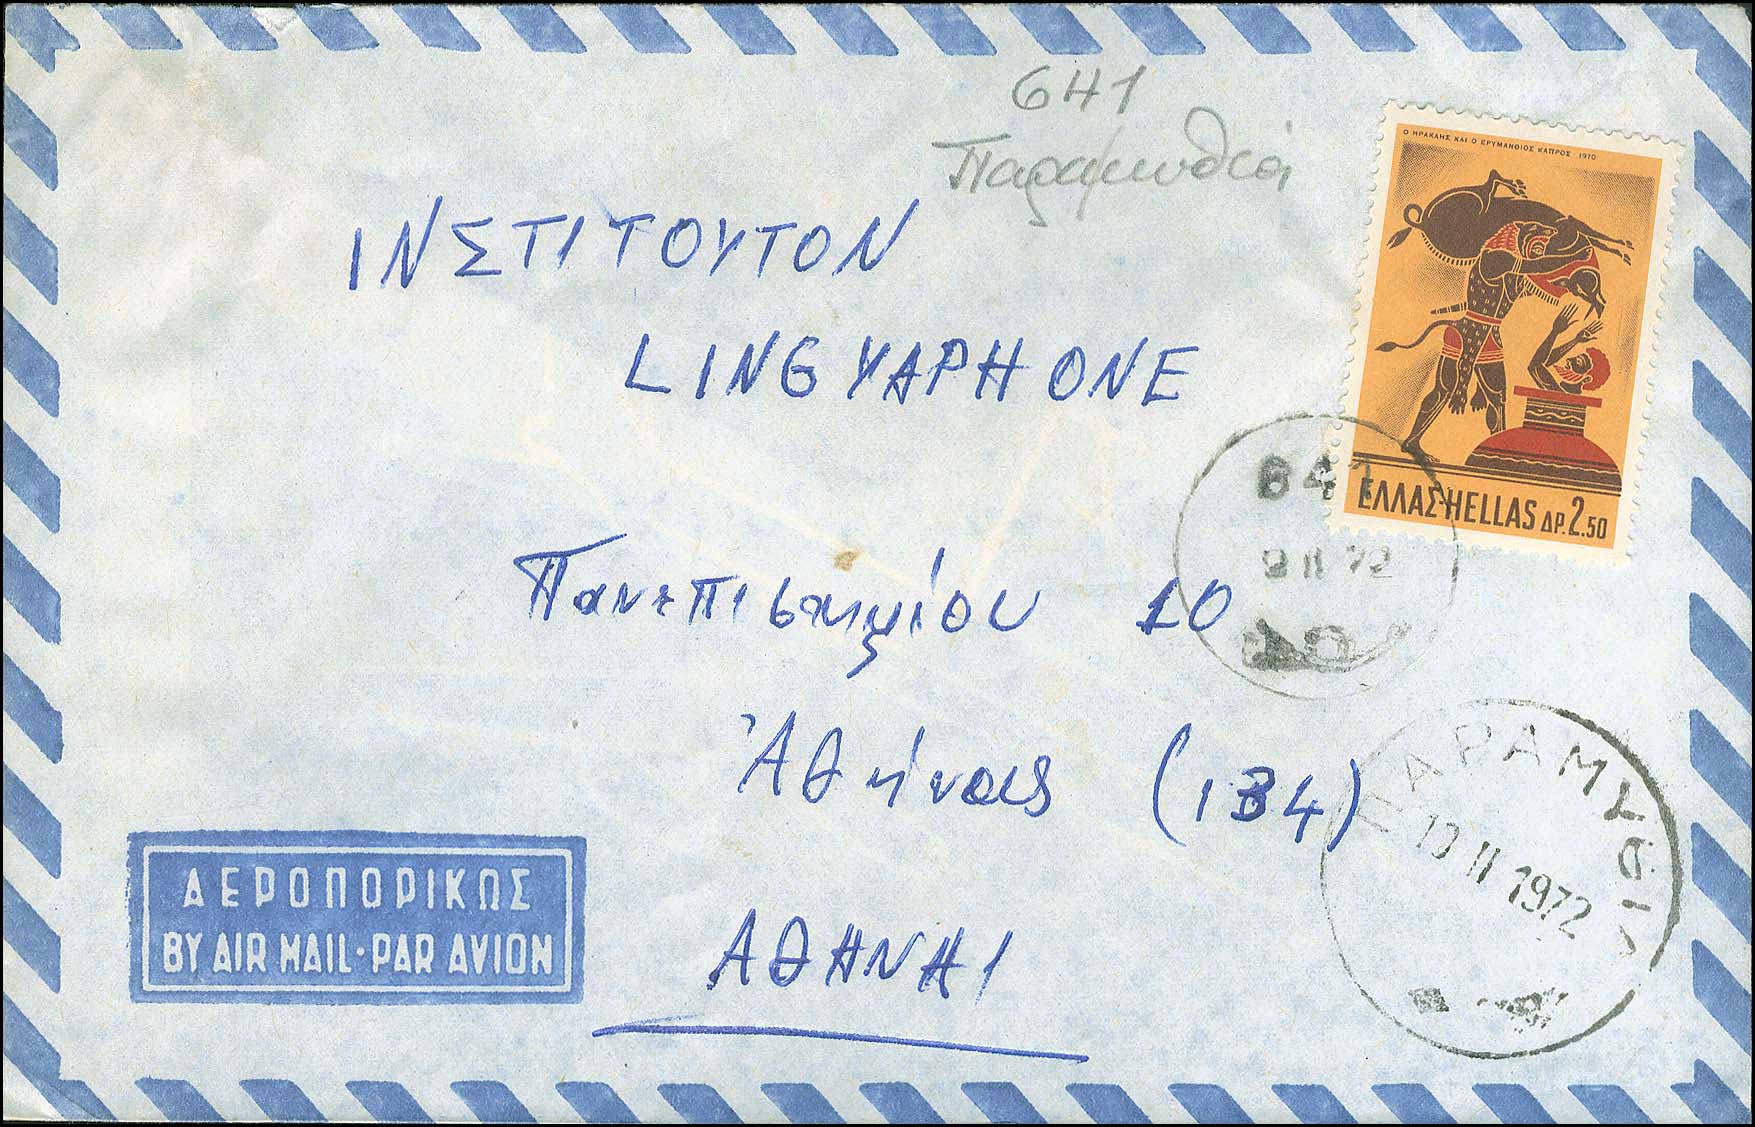 641
Παραμυθιά
Ο ΗΡΑΚΛΗΣ ΚΑΙ Ο ΕΡΥΜΑΝΘΙΟΣ ΚΑΠΡΟΣ 1970
ΙΝΣΤΙΤΟΥΤΟΝ
LINGYAPHONE
641
ΕΛΛΑΣ-HELLAS ΔΡ.2.50
9 II 72
Πανεπιστημίου 10
ΠΑΡΑΜΥΘΙΑ
10 II 1972
Ἀθήνας (134)
ΑΕΡΟΠΟΡΙΚΩΣ
BY AIR MAIL·PAR AVION
ΑΘΗΝΑΙ